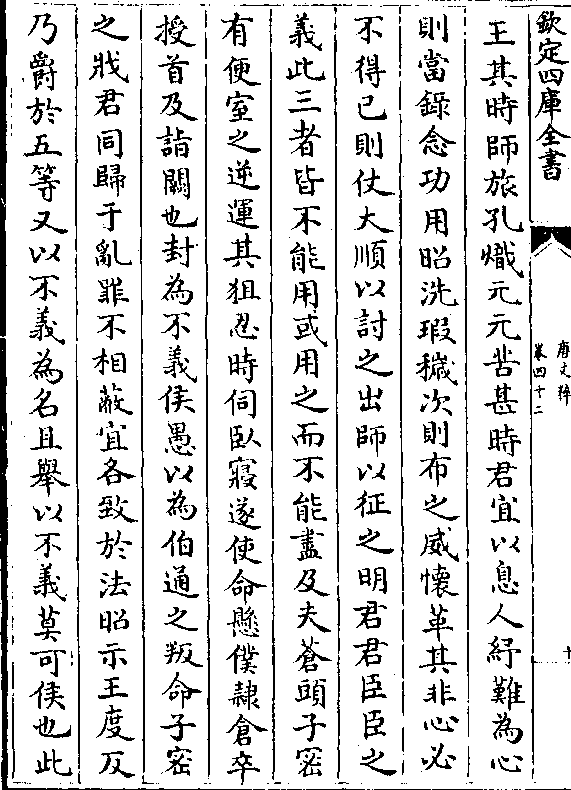 欽定四庫全書
唐文粹
卷四十二
十
王其時師旅孔熾元元苦甚時君宜以息人紓難為心
則當錄念功用昭洗瑕穢次則布之威懷革其非心必
不得已則仗大順以討之出師以征之明君君臣臣之
義此三者皆不能用或用之而不能盡及夫蒼頭子密
有便室之逆運其狙忍時伺臥寢遂使命懸僕隷倉卒
授首及詣闕也封為不義侯愚以為伯通之叛命子密
之戕君同歸于亂罪不相蔽宜各致於法昭示王度反
乃爵於五等又以不義為名且舉以不義莫可侯也此